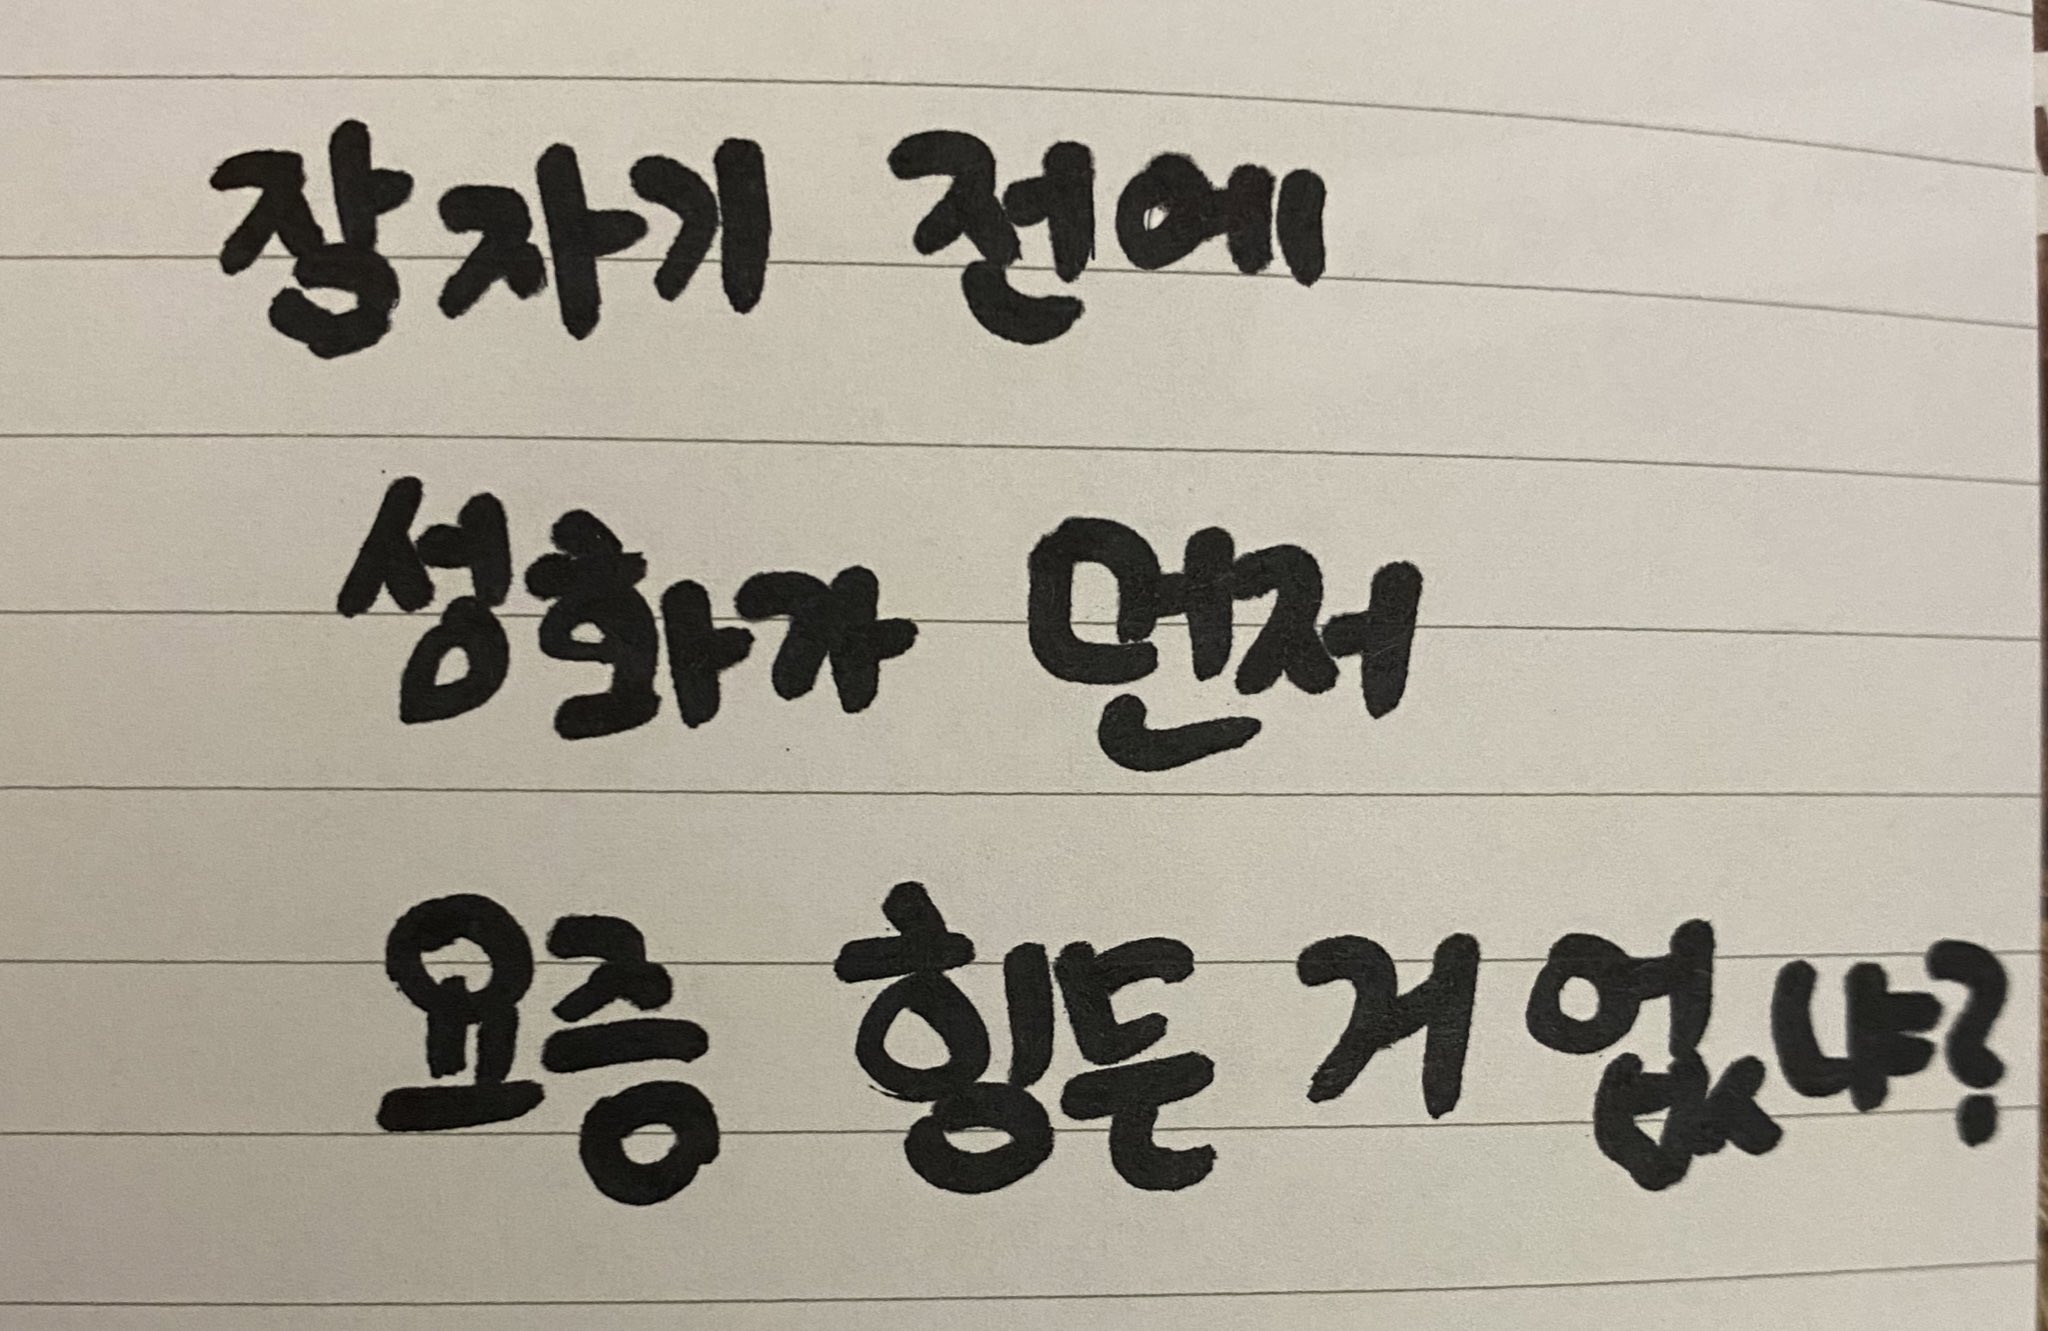 잠자기 전에
성화가 먼저
요즘 힘든 거 없냐?